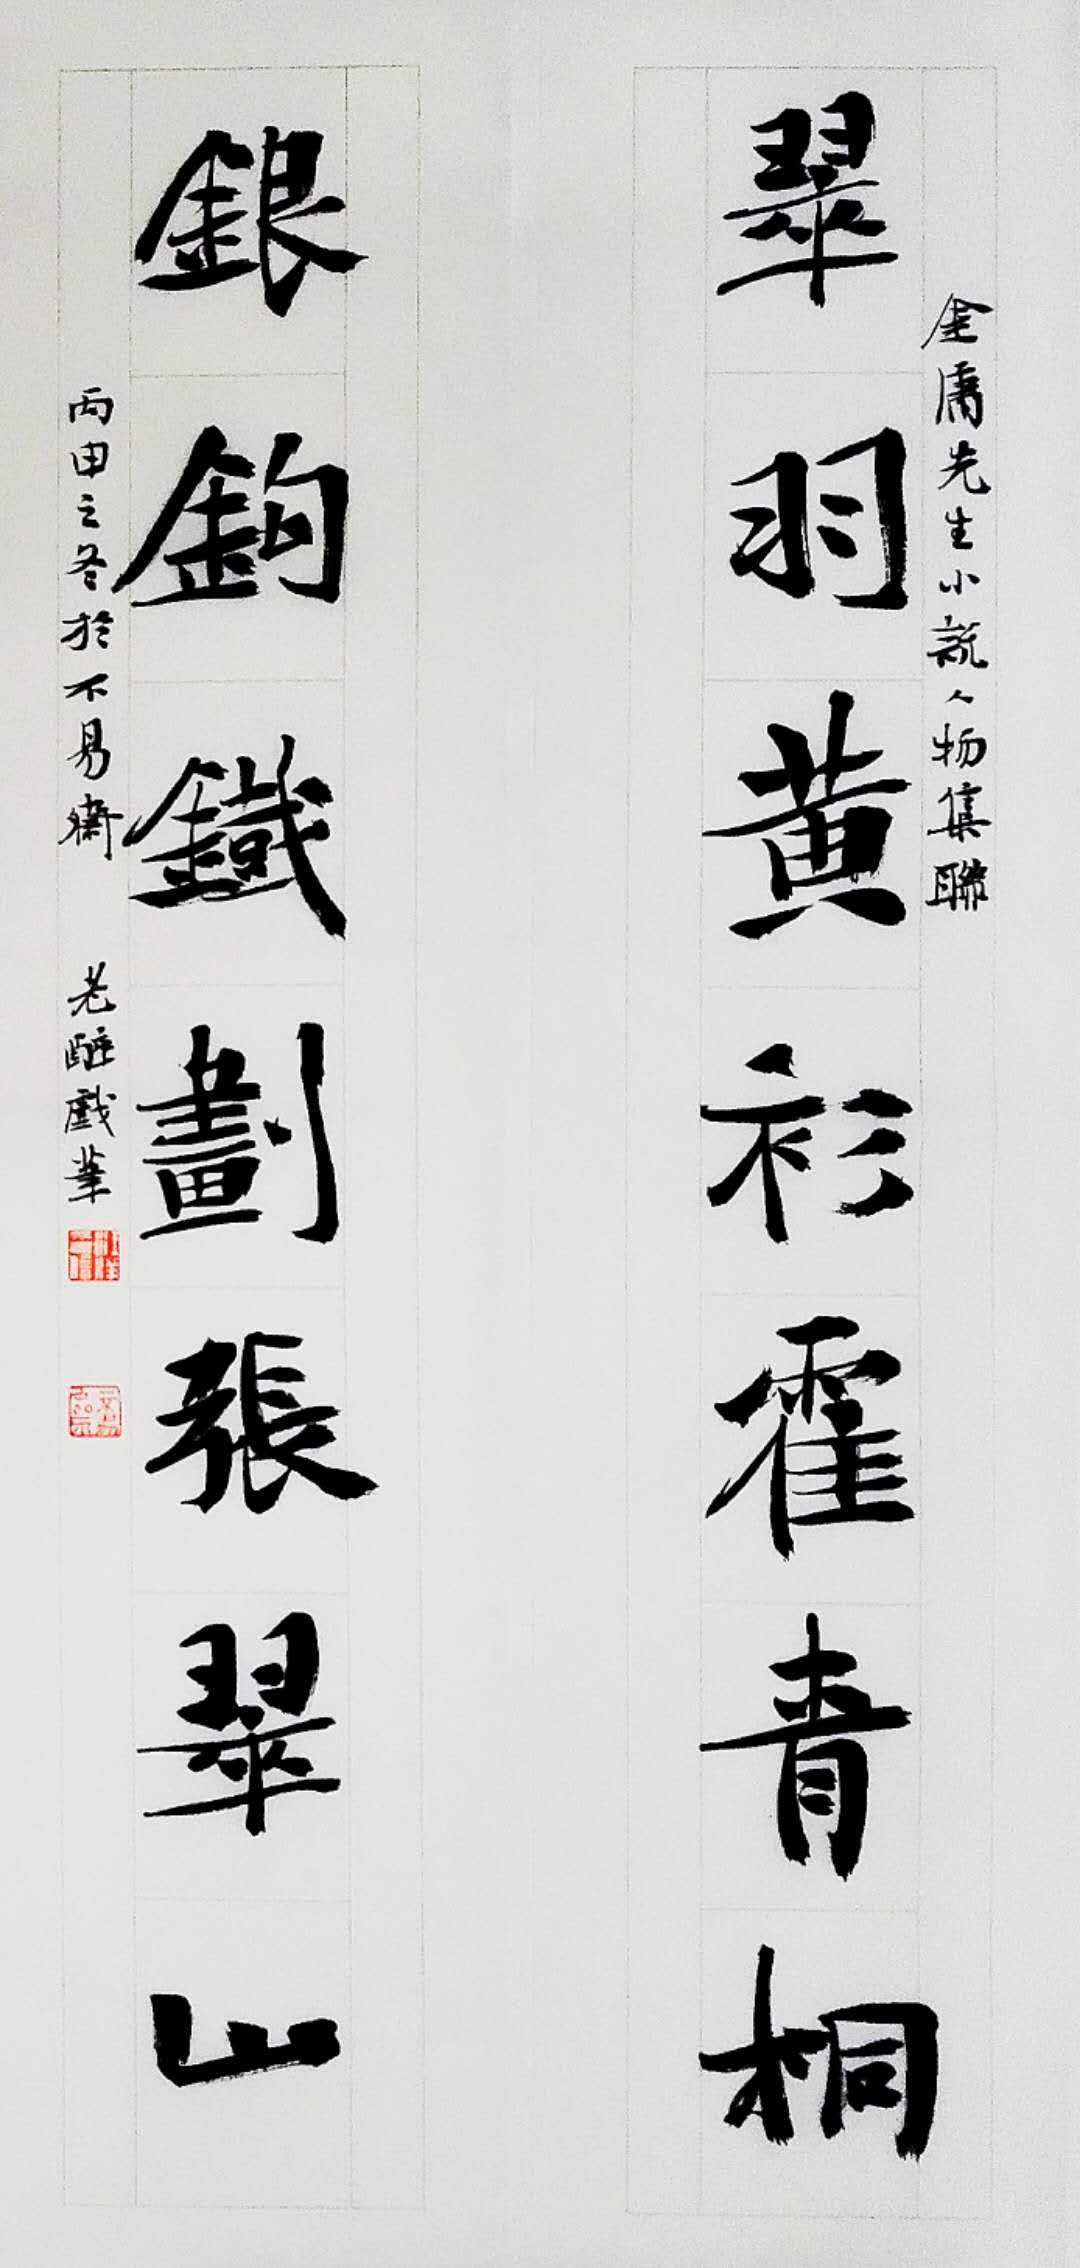 金庸先生小說人物集聯
翠羽黃衫霍青桐
銀鉤鐵劃張翠山
丙申之冬於不易齋 老醉戲筆